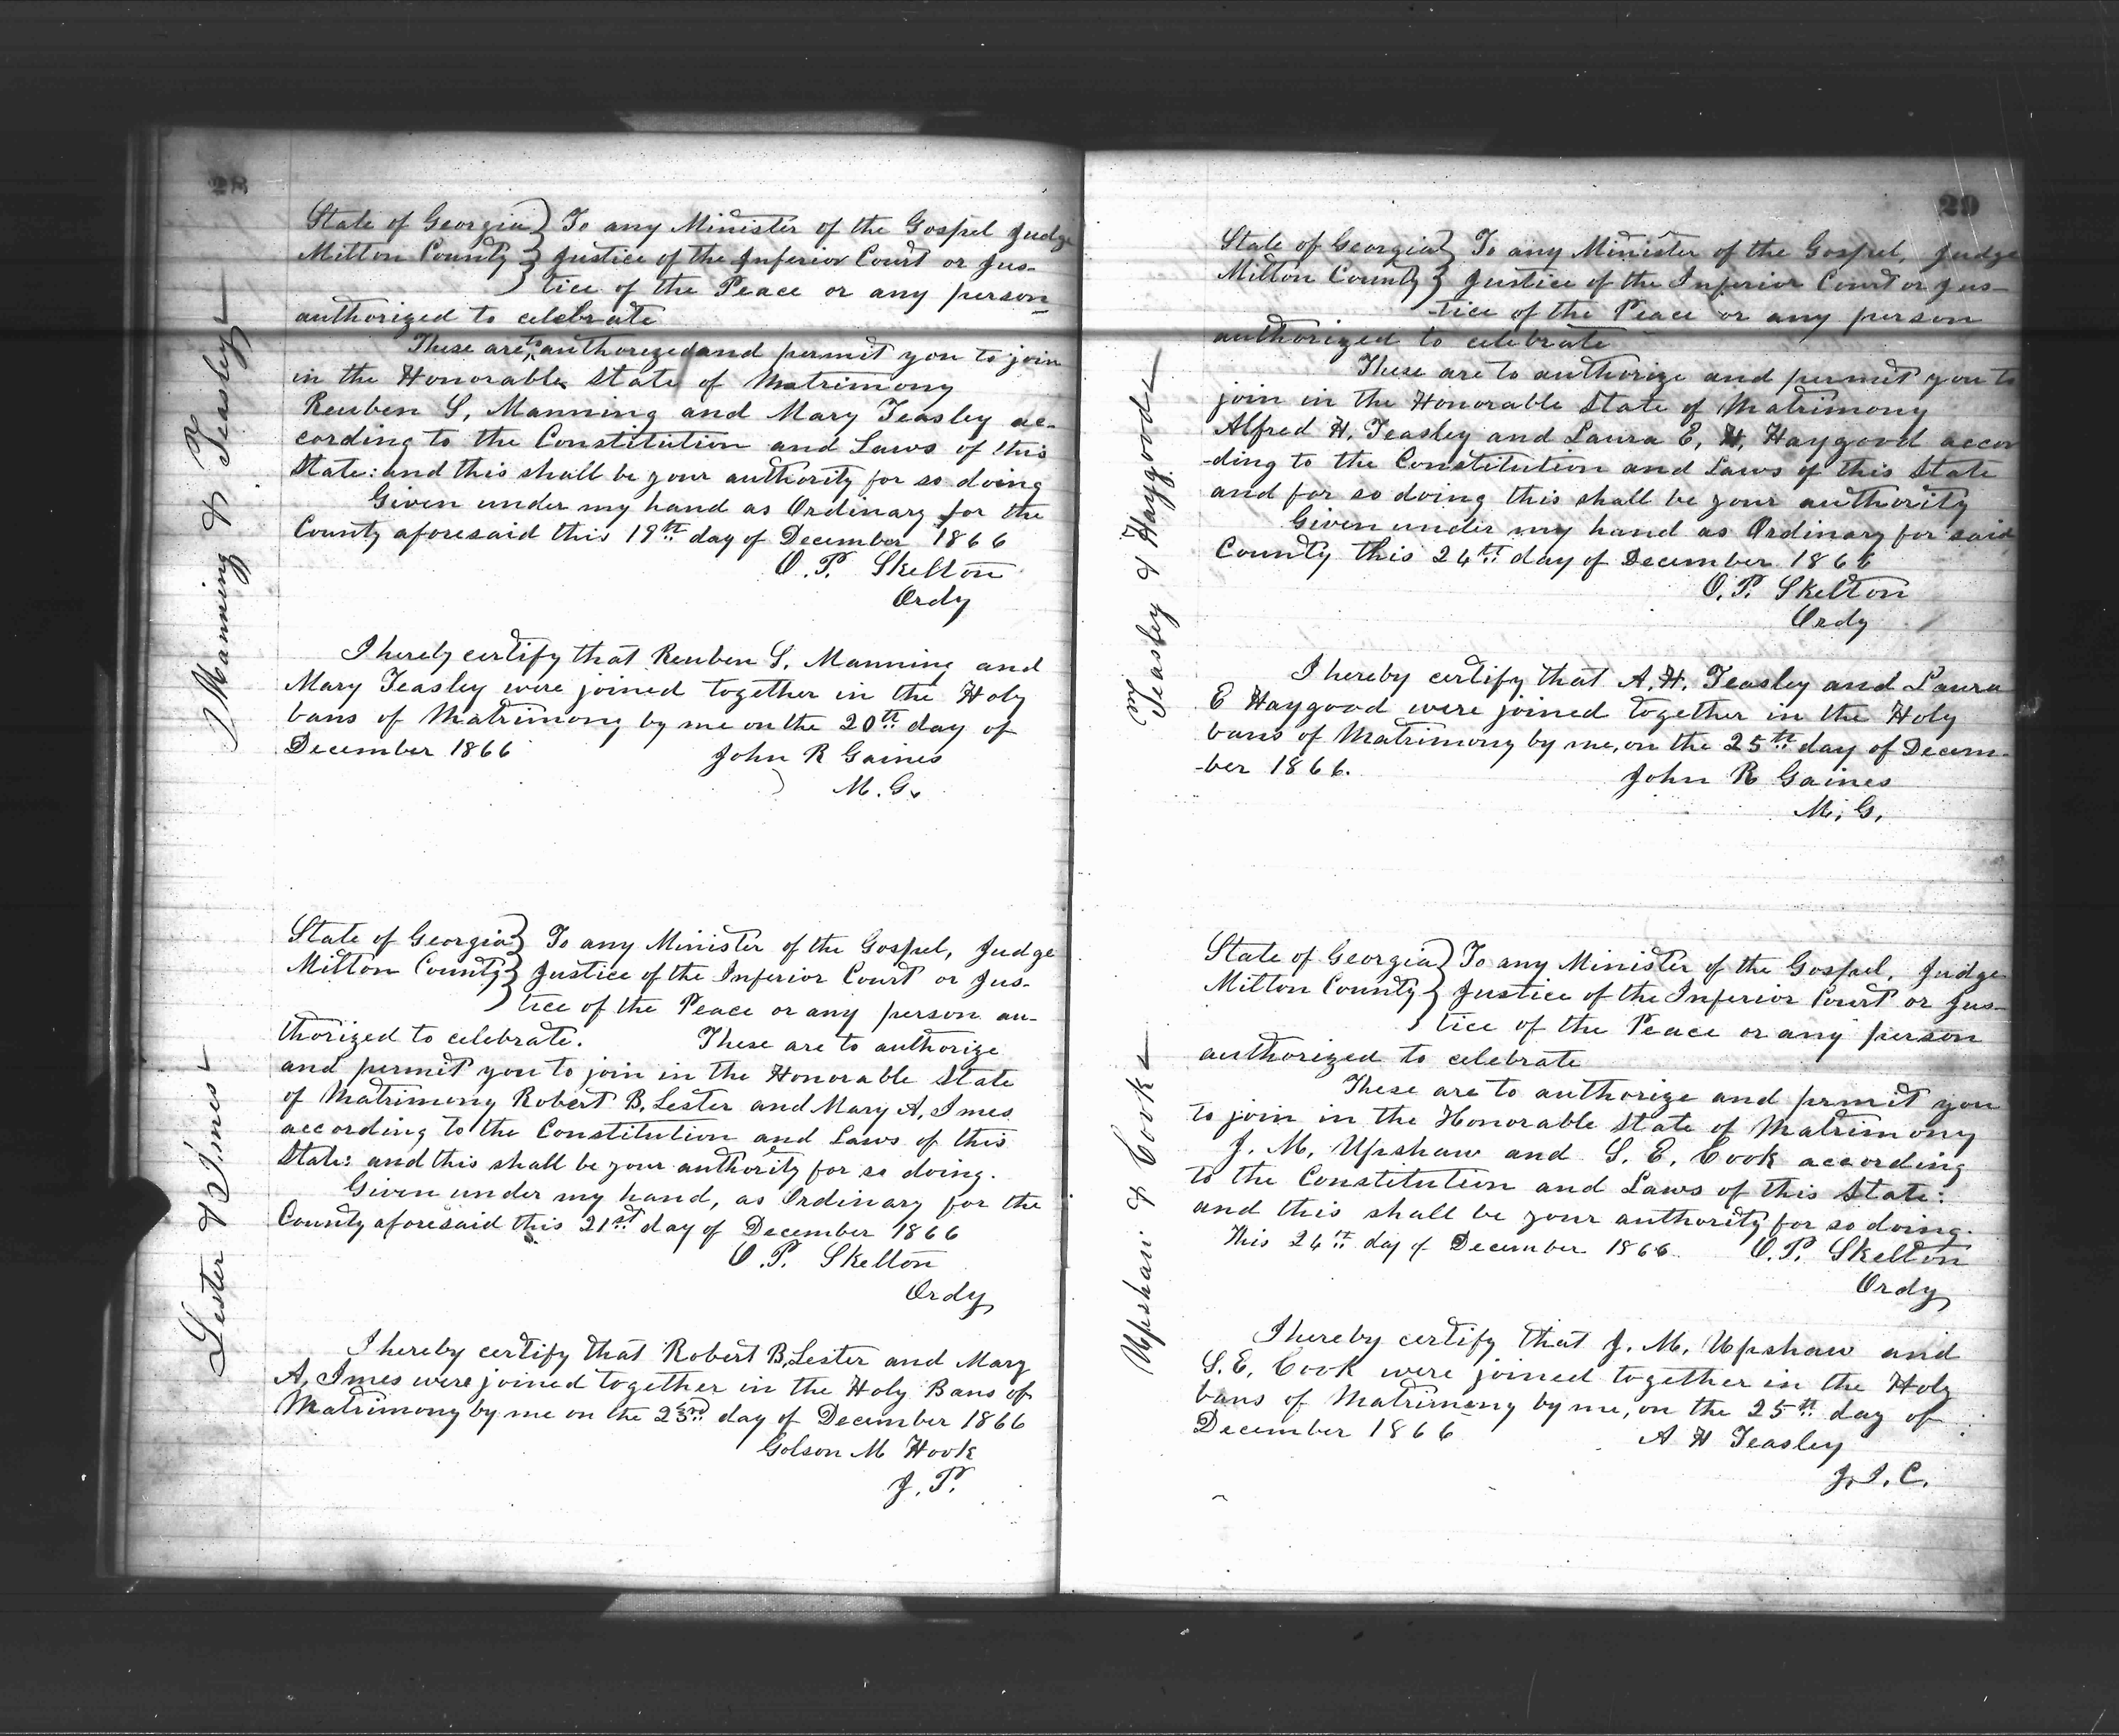 28
Manning & Teasley
State of Georgia } To any Minister of the Gospel Judge
Milton County } Justice of the Inferior Court or Jus-
tice of the Peace or any person
authorized to celebrate
These are to authorized and permit you to join
in the Honorable State of Matrimony
Reuben S. Manning and Mary Teasley ac-
cording to the Constitution and Laws of this
State: and this shall be your authority for so doing
Given under my hand as Ordinary for the
County aforesaid this 19th day of December 1866
O. P. Skelton
Ordy
I hereby certify that Reuben S. Manning and
Mary Teasley were joined together in the Holy
bans of Matrimony by me on the 20th day of
December 1866
John R Gaines
M. G.
Lester & Imes
State of Georgia } To any Minister of the Gospel, Judge
Milton County } Justice of the Inferior Court or Jus-
tice of the Peace or any person au-
thorized to celebrate. These are to authorize
and permit you to join in the Honorable State
of Matrimony Robert B. Lester and Mary A, Imes
according to the Constitution and Laws of this
State: and this shall be your authority for so doing.
Given under my hand, as Ordinary for the
County aforesaid this 21st day of December 1866
O. P. Skelton
Ordy
I hereby certify that Robert B, Lester and Mary
A, Imes were joined together in the Holy Bans of
Matrimony by me on the 23rd day of December 1866
Golson M Hook
J. P.
29
Teasley & Haygood
State of Georgia } To any Minister of the Gospel, Judge
Milton County } Justice of the Inferior Court or Jus-
tice of the Peace or any person
authorized to celebrate
These are to authorize and permit you to
join in the Honorable State of Matrimony
Alfred H. Teasley and Laura E, H, Haygood accor
-ding to the Constitution and Laws of this State
and for so doing this shall be your authority
Given under my hand as Ordinary for said
County this 24th day of December 1866
O. P. Skelton
Ordy
I hereby certify that A. H. Teasley and Laura
E Haygood were joined together in the Holy
bans of Matrimony by me, on the 25th day of Decem-
-ber 1866.
John R Gaines
M. G.
Upshaw & Cook
State of Georgia } To any Minister of the Gospel, Judge
Milton County } Justice of the Inferior Court or Jus-
tice of the Peace or any person
authorized to celebrate
These are to authorize and prmit you
to join in the Honorable State of Matrimony
J. M. Upshaw and S. E. Cook according
to the Constitution and Laws of this State:
and this shall be your authority for so doing.
This 24th day of December 1866. O. P. Skelton
Ordy
I hereby certify that J. M. Upshaw and
S. E. Cook were joined together in the Holy
bans of Matrimony by me, on the 25th day of
December 1866
A H Teasley
J. I. C.